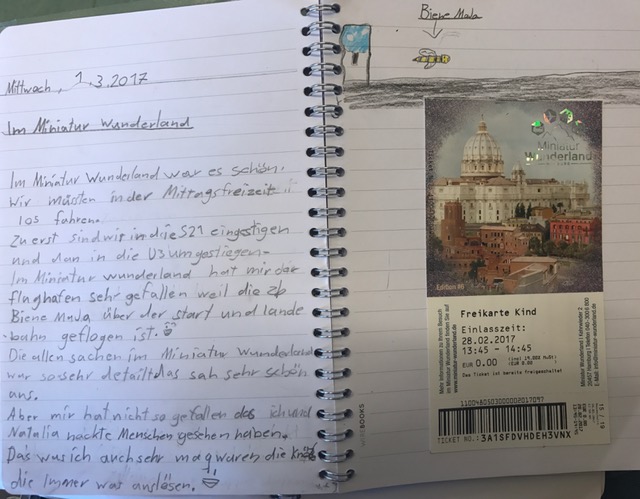 Mittwoch, 1.3.2017
Im Miniatur Wunderland
Im Miniatur Wunderland war es schön.
Wir mussten in der Mittagsfreizeit
los fahren.
Zu erst sind wir in die S21 eingestigen
und dan in die U3 umgestiegen.
Im Miniatur wunderland hat mir der
flughafen sehr gefallen weil die zb
Biene Maja über der start und lande
bahn geflogen ist.
Die allen sachen im Miniatur Wunderland
war so sehr das sah sehr schön
ans.
Aber mir hat nicht so gefallen das ich und
Natalia nackte Menschen gesehen haben.
Das was ich auch sehr mag waren die
die Immer was auslösen.
Biene Maja
Miniatur
Wunderland
Edition #6
Freikarte Kind
Einlasszeit:
28.02.2017
13:45 - 14:45
EUR 0.00
Das Ticket ist bereits freigeschaltet
11004805030000002017097
TICKET NO.: 3A1SFDVHDEH3VNX